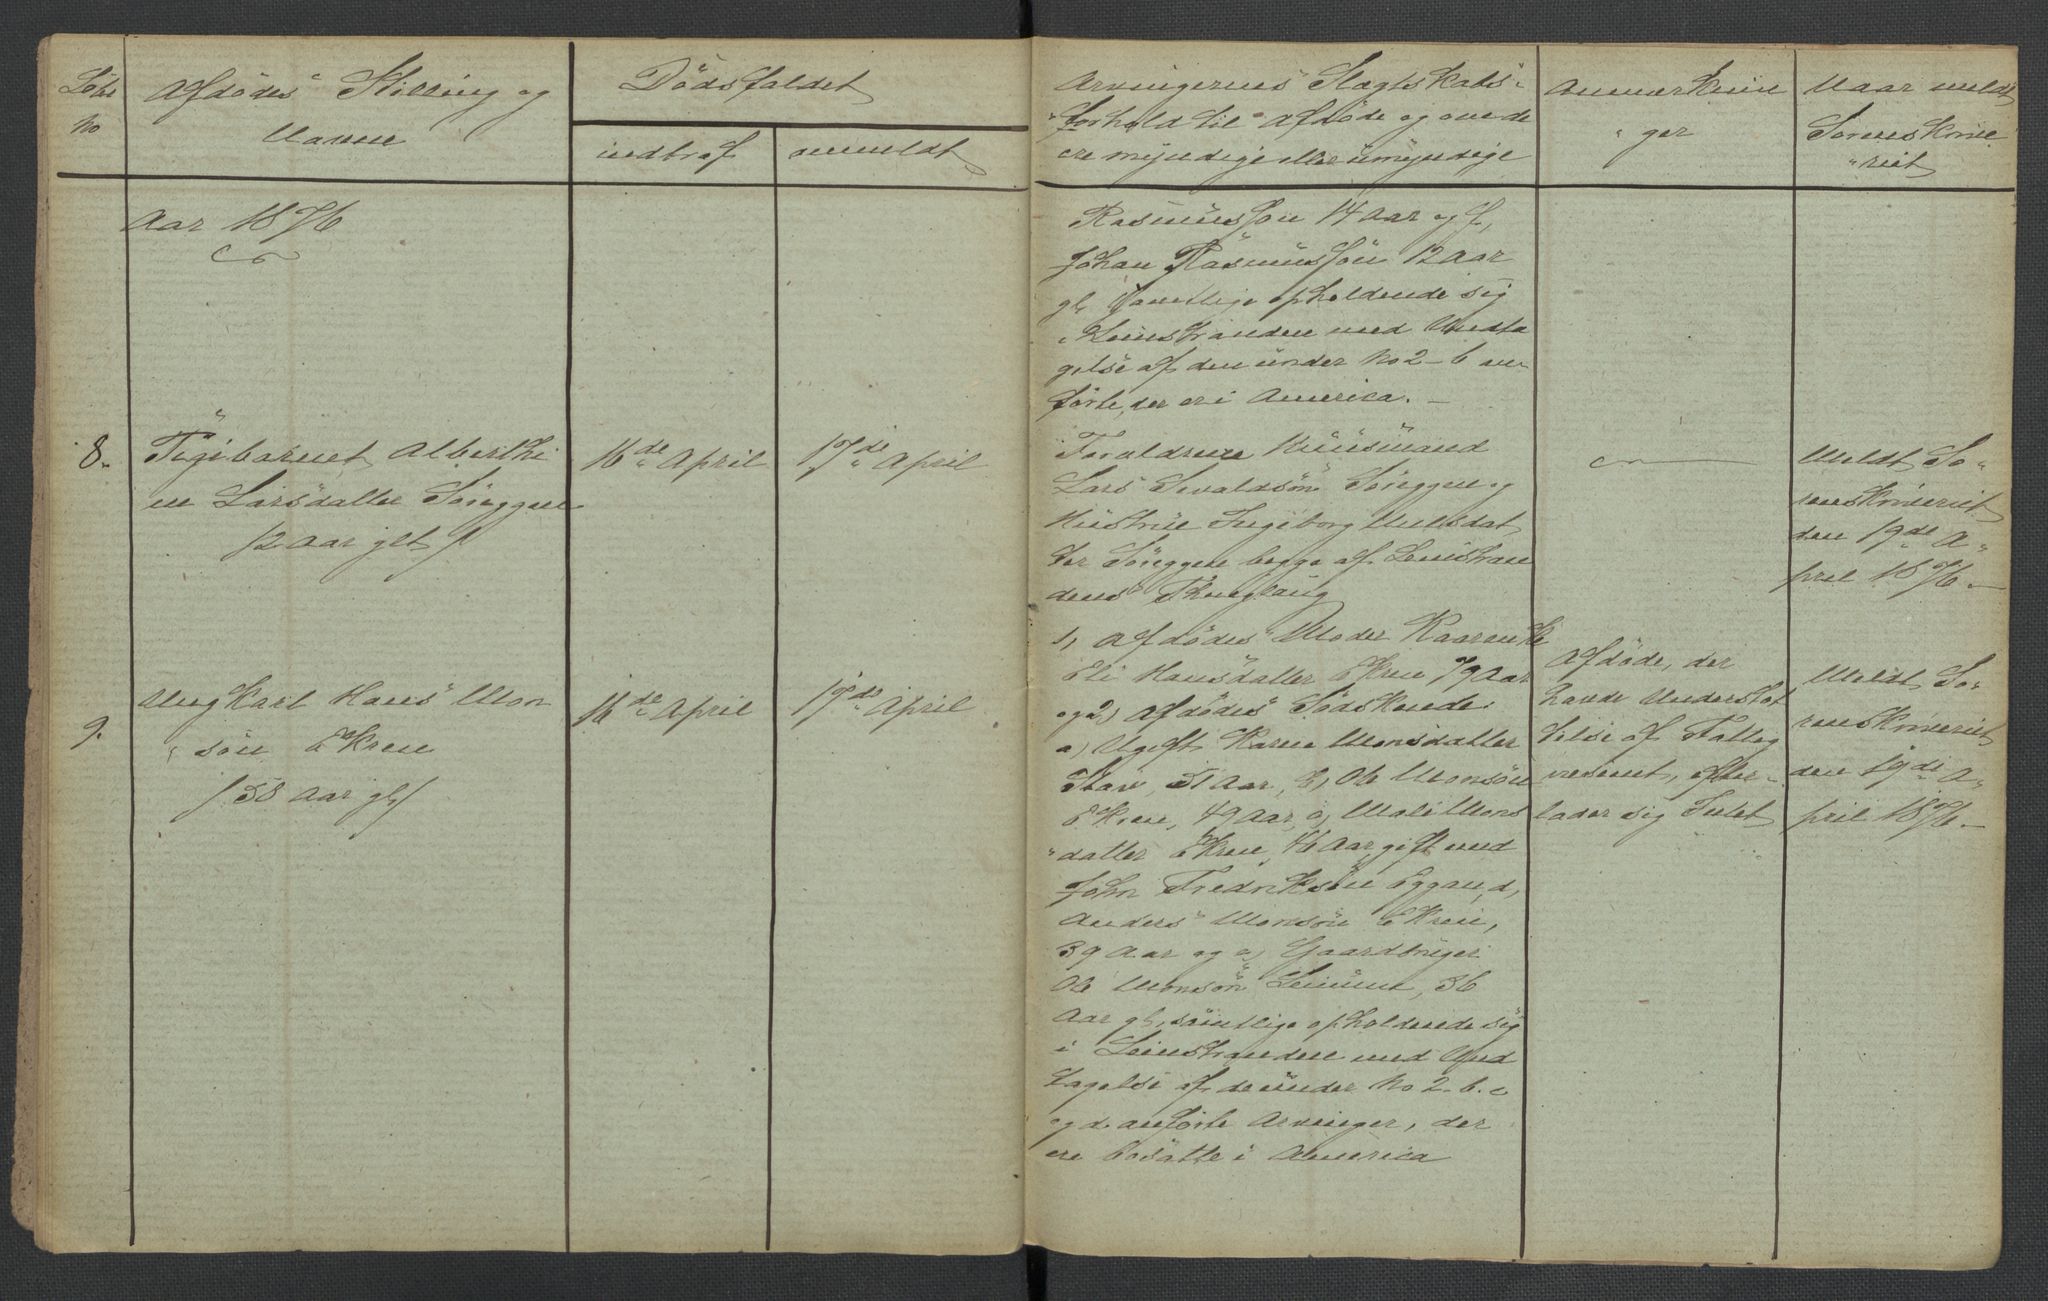 Løbe
No
Afdødes Stilling og
Navn
Dödsfaldet
indtraf
anmeldt
Arvingernes Slægtskabs-
forhold til Afdøde og om de
ere myndige eller umyndige
Anmærknin
ger
Naar meldt
Sorenskrive
riet
Aar 1876
Rasmussøn 14 Aar og f,
Johan Rasmussøn 12 Aar
gl, samtlige opholdende sig
i Leinstranden med Undta
gelse af den under No 2-b an
förte, der er i America. -
8.
Tvgibarnet Alberthi
ne Larsdatter Sörggen
/2 Aar glt/
16de April
17de April
Forældrene Huusmand
Lars Sivaldsøn Söreggen og
Hustrue Ingeborg Nilsdat
ter Söreggen begge af Leinstran
dens Thinglaug
Meldt So-
renskriveriet
den 19de A-
pril 1876.-
9.
Ungkarl Hans Mon
søn Ekren
/58 Aar gl/
16de April
17de April
1, Afdødes Moder Kaaren
Eli Hansdatter Ekren 79 Aar
og 2, Afdødes Södskende:
a, Ugift Karen Monsdatter
Stav, 51 Aar, b, Ole Monsøn
Ekren, 49 Aar, c, Mali Mons
datter Ekren, 46 Aar, gift med
John Fredriksøn Eggan, d,
Anders Monsøn Ekren,
39 Aar og e, Gaardbruger
Ole Monsøn Leinum, 36
Aar gl, samtlige opholdende sig
i Leinstranden med Und
tagelse af de under No 2- b. c
og d. anførte Arvinger, der
ere bosatte i America
Afdøde, der
havde Understøt
telse af Fattig
væsenet, efter-
lader sig Intet
Meldt So-
renskriveriet
den 19de A-
pril 1876.-